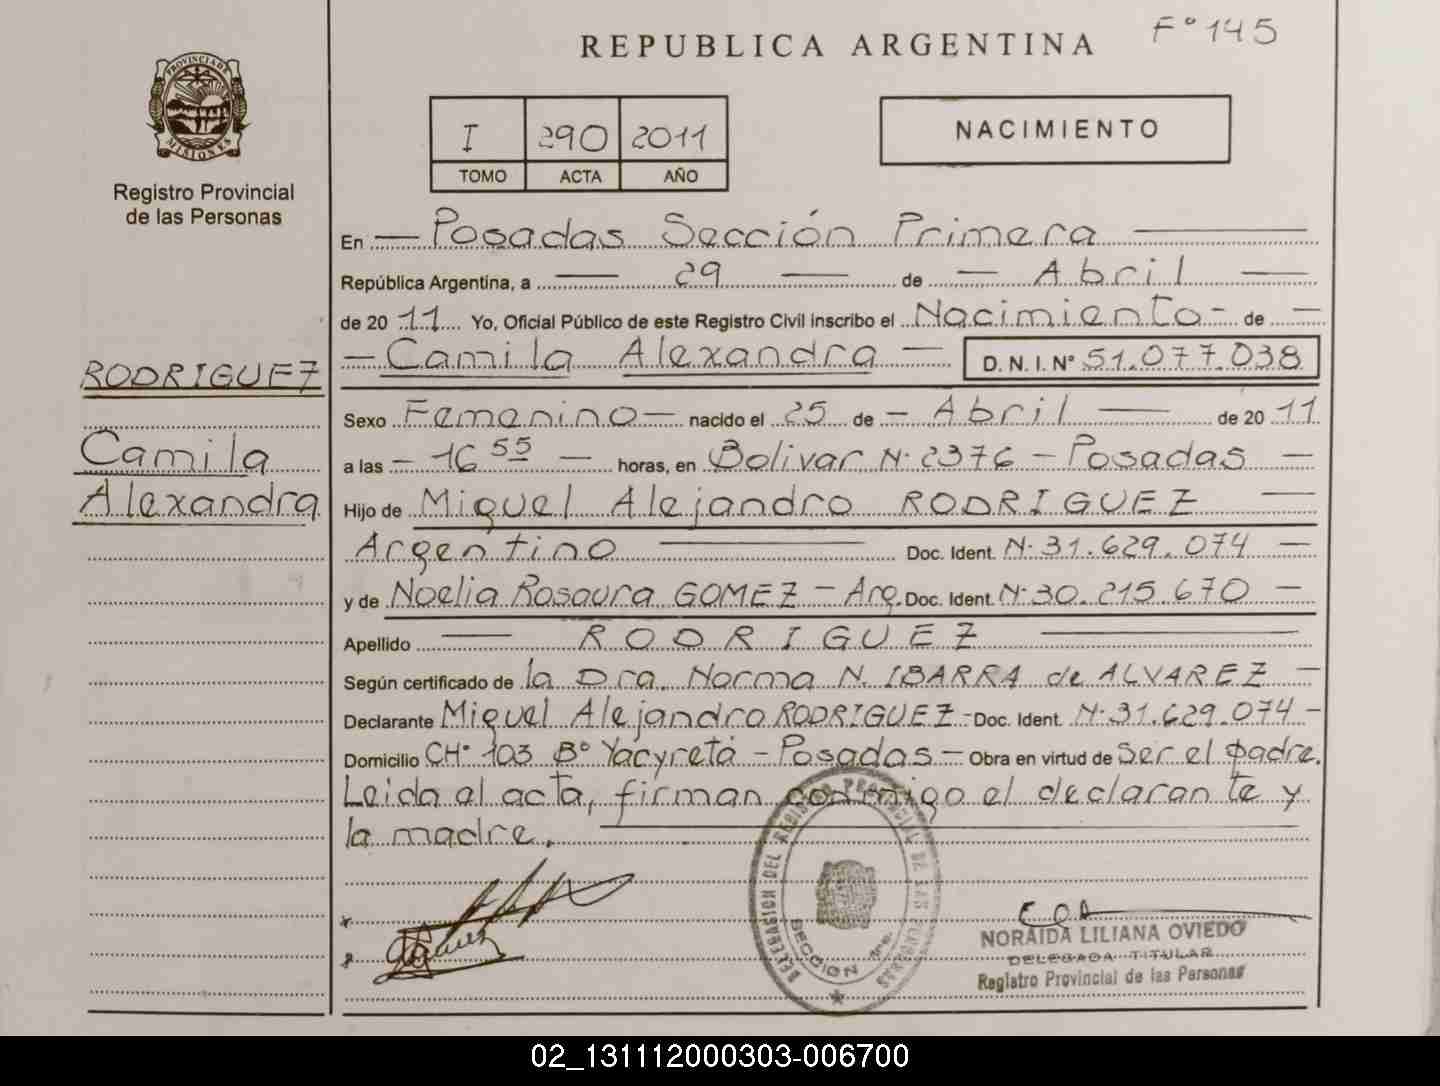 F° 145
REPUBLICA ARGENTINA
PROVINCIA DE MISIONES
Registro Provincial
de las Personas
I 290 2011
TOMO ACTA AÑO
NACIMIENTO
En — Posadas Sección Primera —
República Argentina, a — 29 — de — Abril —
de 20 11 Yo, Oficial Público de este Registro Civil inscribo el Nacimiento - de —
— Camila Alexandra — D. N. I. Nº 51.077.038
RODRIGUEZ
Camila
Alexandra
Sexo Femenino — nacido el 25 de — Abril — de 20 11
a las — 16 55 — horas, en Bolivar N· 2376 — Posadas —
Hijo de Miguel Alejandro RODRIGUEZ —
Argentino — Doc. Ident. N· 31.629.074 —
y de Noelia Rosaura GOMEZ — Arg. Doc. Ident. N· 30.215.670 —
Apellido — RODRIGUEZ —
Según certificado de la Dra. Norma N. IBARRA de ALVAREZ —
Declarante Miguel Alejandro RODRIGUEZ - Doc. Ident. N· 31.629.074 —
Domicilio CHº 103 Bº Yacyretá — Posadas — Obra en virtud de Ser el padre.
Leida al acta, firman conmigo el declarante y
la madre.
DELEGACION DEL REGISTRO PROVINCIAL DE LAS PERSONAS
SECCION 1ra.
NORAIDA LILIANA OVIEDO
DELEGADA TITULAR
Registro Provincial de las Personas
02_131112000303-006700